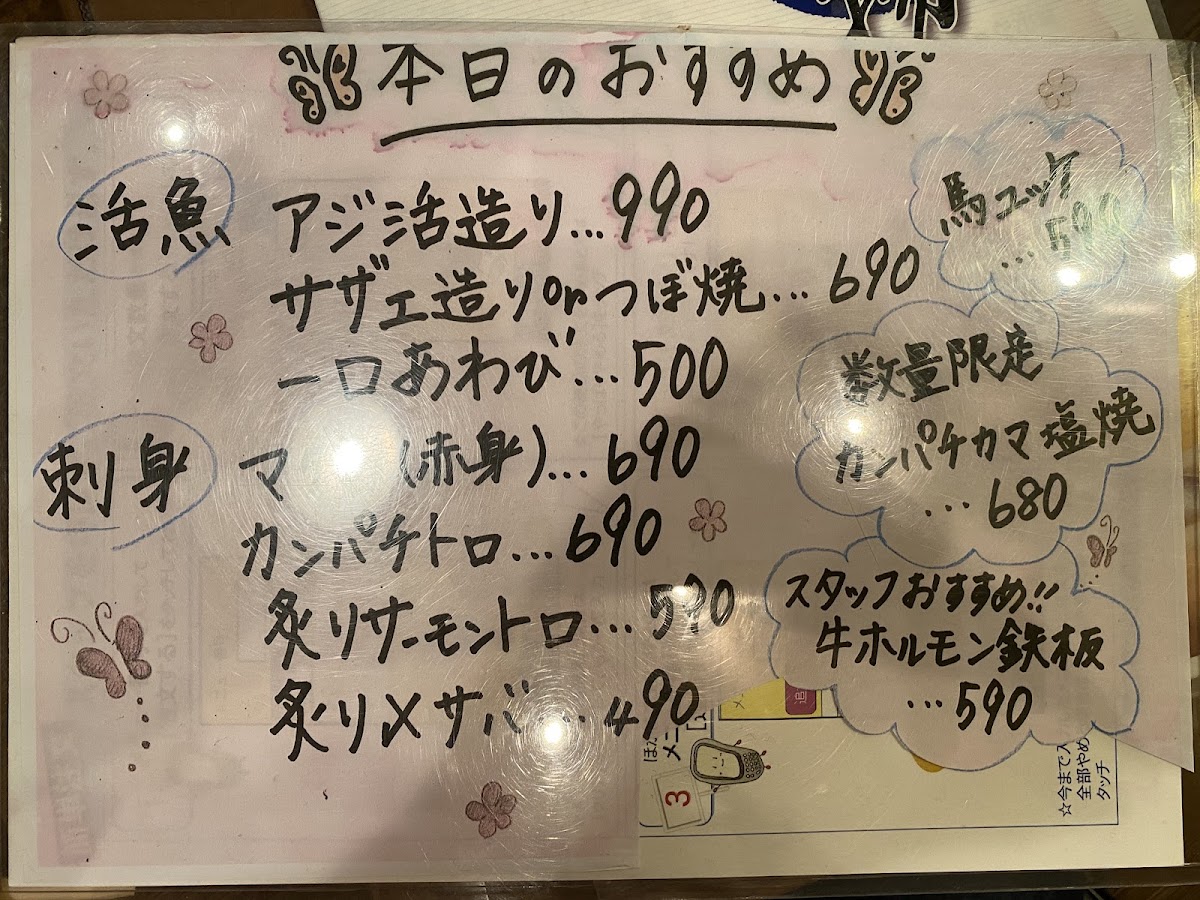 本日のおすすめ
活魚
アジ活造り…990
サザエ造りorつぼ焼…690
一口あわび…500
刺身
マ (赤身)…690
カンパチトロ…690
炙りサーモントロ…590
炙り〆サバ…490
馬ユッケ
…590
数量限定
カンパチカマ塩焼
…680
スタッフおすすめ!!
牛ホルモン鉄板
…590
3
メニ
☆今まで
全部やめ
タッチ